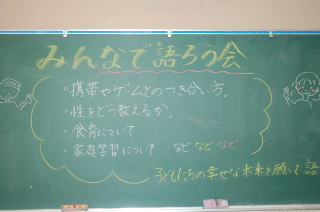 みんなで語ろう会
・携帯やゲームとのつき合い方。
・性をどう教えるか。
・食育について
・家庭学習について など など など
子どもたちの幸せな未来を願って 語